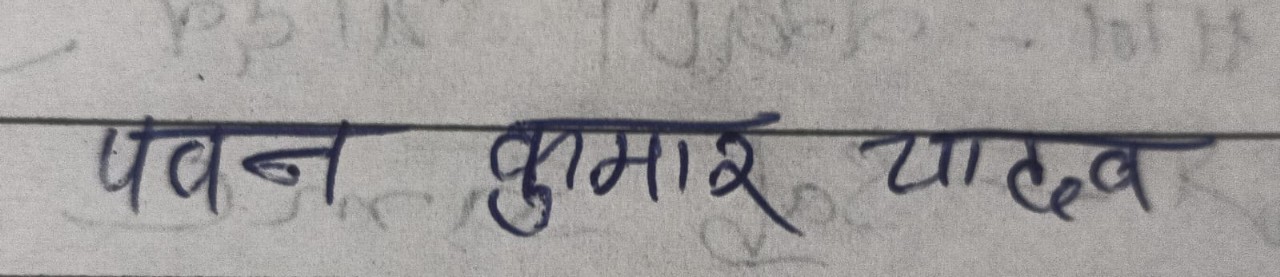 पवन कुमार यादव